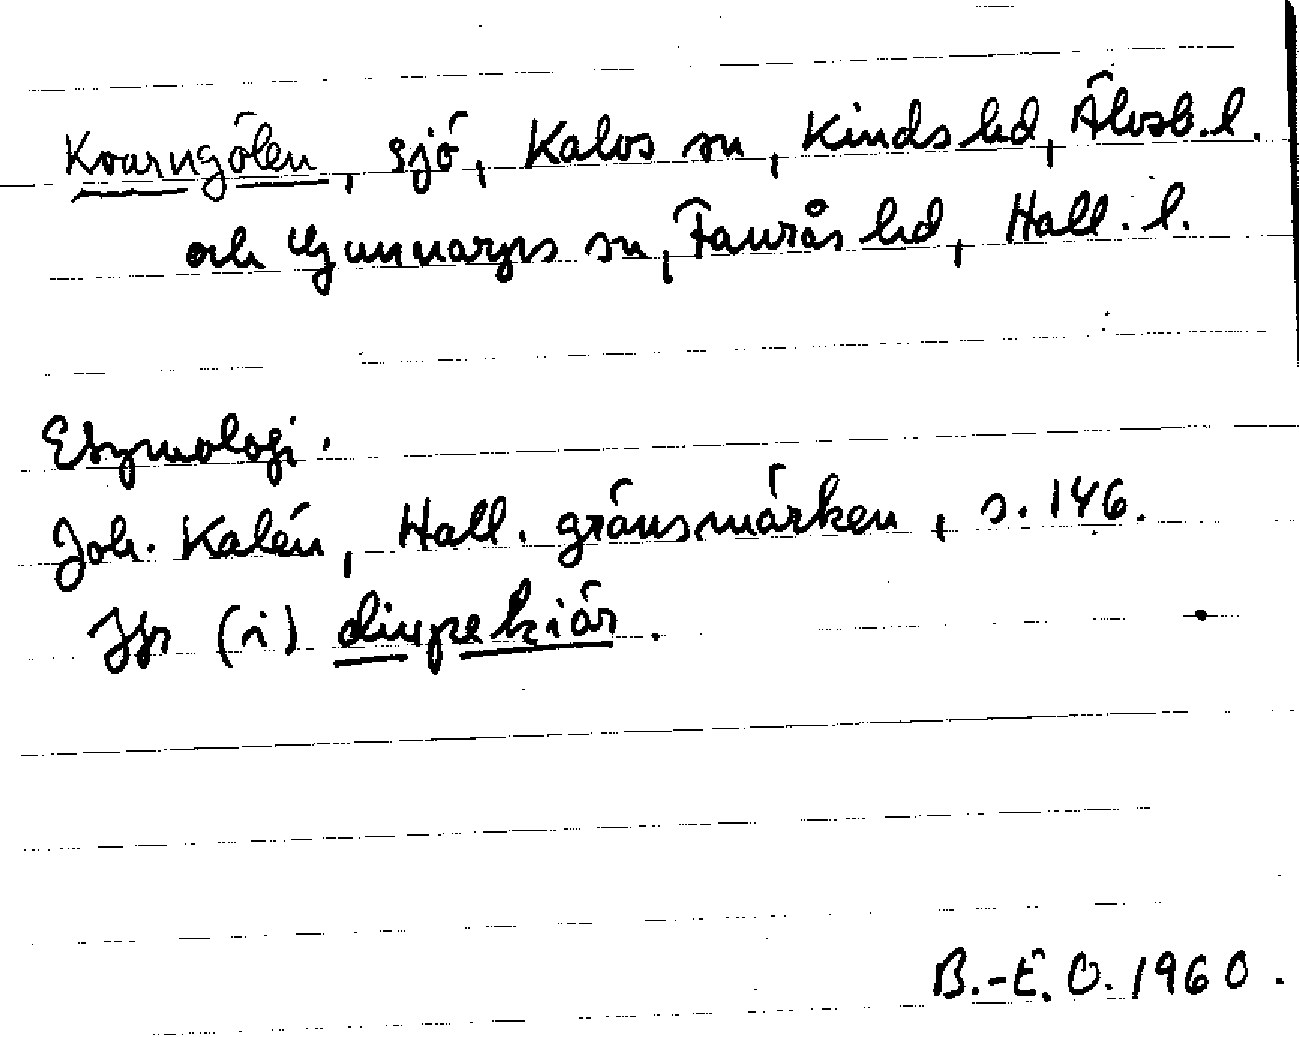 Kvarngölen, sjö, Kalvs sn, Kinds hd, Älvsb. l.
och Gunnarps sn, Faurås hd, Hall. l.
Etymologi.
Joh. Kalén, Hall. gränsmärken, s. 146.
Jfr (i) diupekiär.
B.-E. O. 1960.